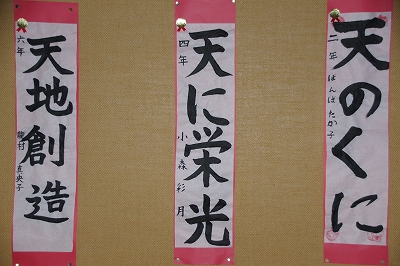 天のくに
二年 ほんは たか子
天に栄光
四年 小森彩月
天地創造
六年 龍村真央子